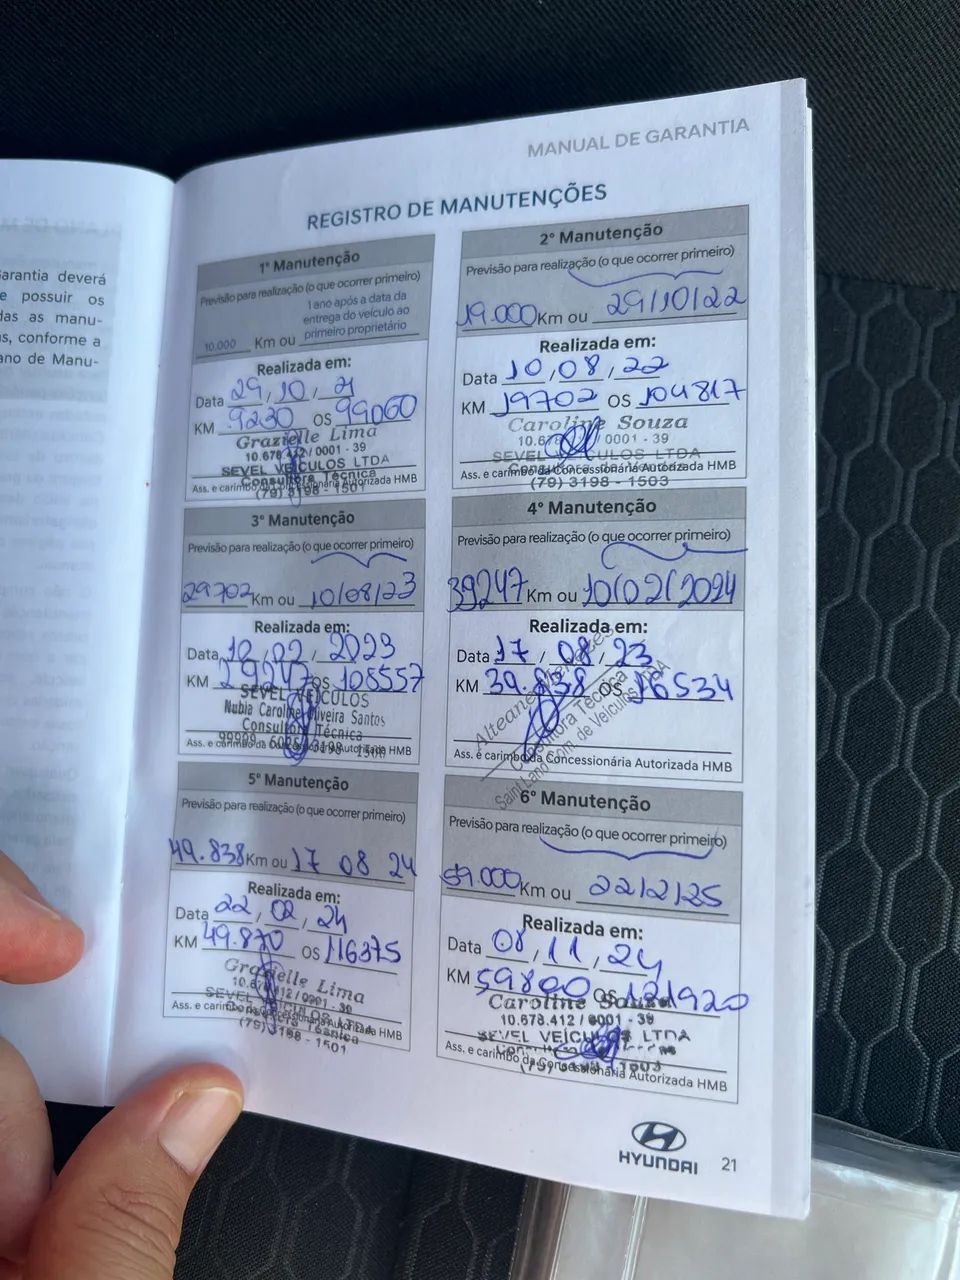 arantia deverá
e possuir os
das as manu-
s, conforme a
ano de Manu-
MANUAL DE GARANTIA
REGISTRO DE MANUTENÇÕES
1ª Manutenção
Previsão para realização (o que ocorrer primeiro)
10.000 Km ou 1 ano após a data da
entrega do veículo ao
primeiro proprietário
Realizada em:
Data 29, 10, 21
KM 9230 OS 99060
Grazielle Lima
10.678.412/0001-39
SEVEL VEÍCULOS LTDA
Consultora Técnica
Ass. e carimbo da Concessionária Autorizada HMB
(79) 3198 - 1501
2ª Manutenção
Previsão para realização (o que ocorrer primeiro)
19.000 Km ou 29/10/22
Realizada em:
Data 10, 08, 22
KM 19702 OS 104817
Caroline Souza
10.678 0001 - 39
SEVEL VEÍCULOS LTDA
Ass. e carimbo da Concessionária Autorizada HMB
(79) 3198 - 1503
3ª Manutenção
Previsão para realização (o que ocorrer primeiro)
29702 Km ou 10/08/23
Realizada em:
Data 10, 02, 2023
KM 29247 OS 108557
SEVEL VEÍCULOS
Nubia Caroline Oliveira Santos
Consultora Técnica
Ass. e carimbo da Concessionária Autorizada HMB
4ª Manutenção
Previsão para realização (o que ocorrer primeiro)
39247 Km ou 10/02/2024
Realizada em:
Data 17, 08, 23
KM 39.838 OS 116534
Consultora Técnica
Saint Lano Com. de Veículos LTDA
Ass. e carimbo da Concessionária Autorizada HMB
5ª Manutenção
Previsão para realização (o que ocorrer primeiro)
49.838 Km ou 17 08 24
Realizada em:
Data 22, 02, 24
KM 49.870 OS 116375
Grazielle Lima
10.678.412/0001-39
SEVEL VEÍCULOS LTDA
Consultora Técnica
Ass. e carimbo da Concessionária Autorizada HMB
(79) 3198 - 1501
6ª Manutenção
Previsão para realização (o que ocorrer primeiro)
59.000 Km ou 22/2/25
Realizada em:
Data 08, 11, 24
KM 59800 OS 121920
Caroline Souza
10.678.412 / 0001 - 39
SEVEL VEÍCULOS LTDA
Ass. e carimbo da Concessionária Autorizada HMB
(79) 3198 - 1503
HYUNDAI 21